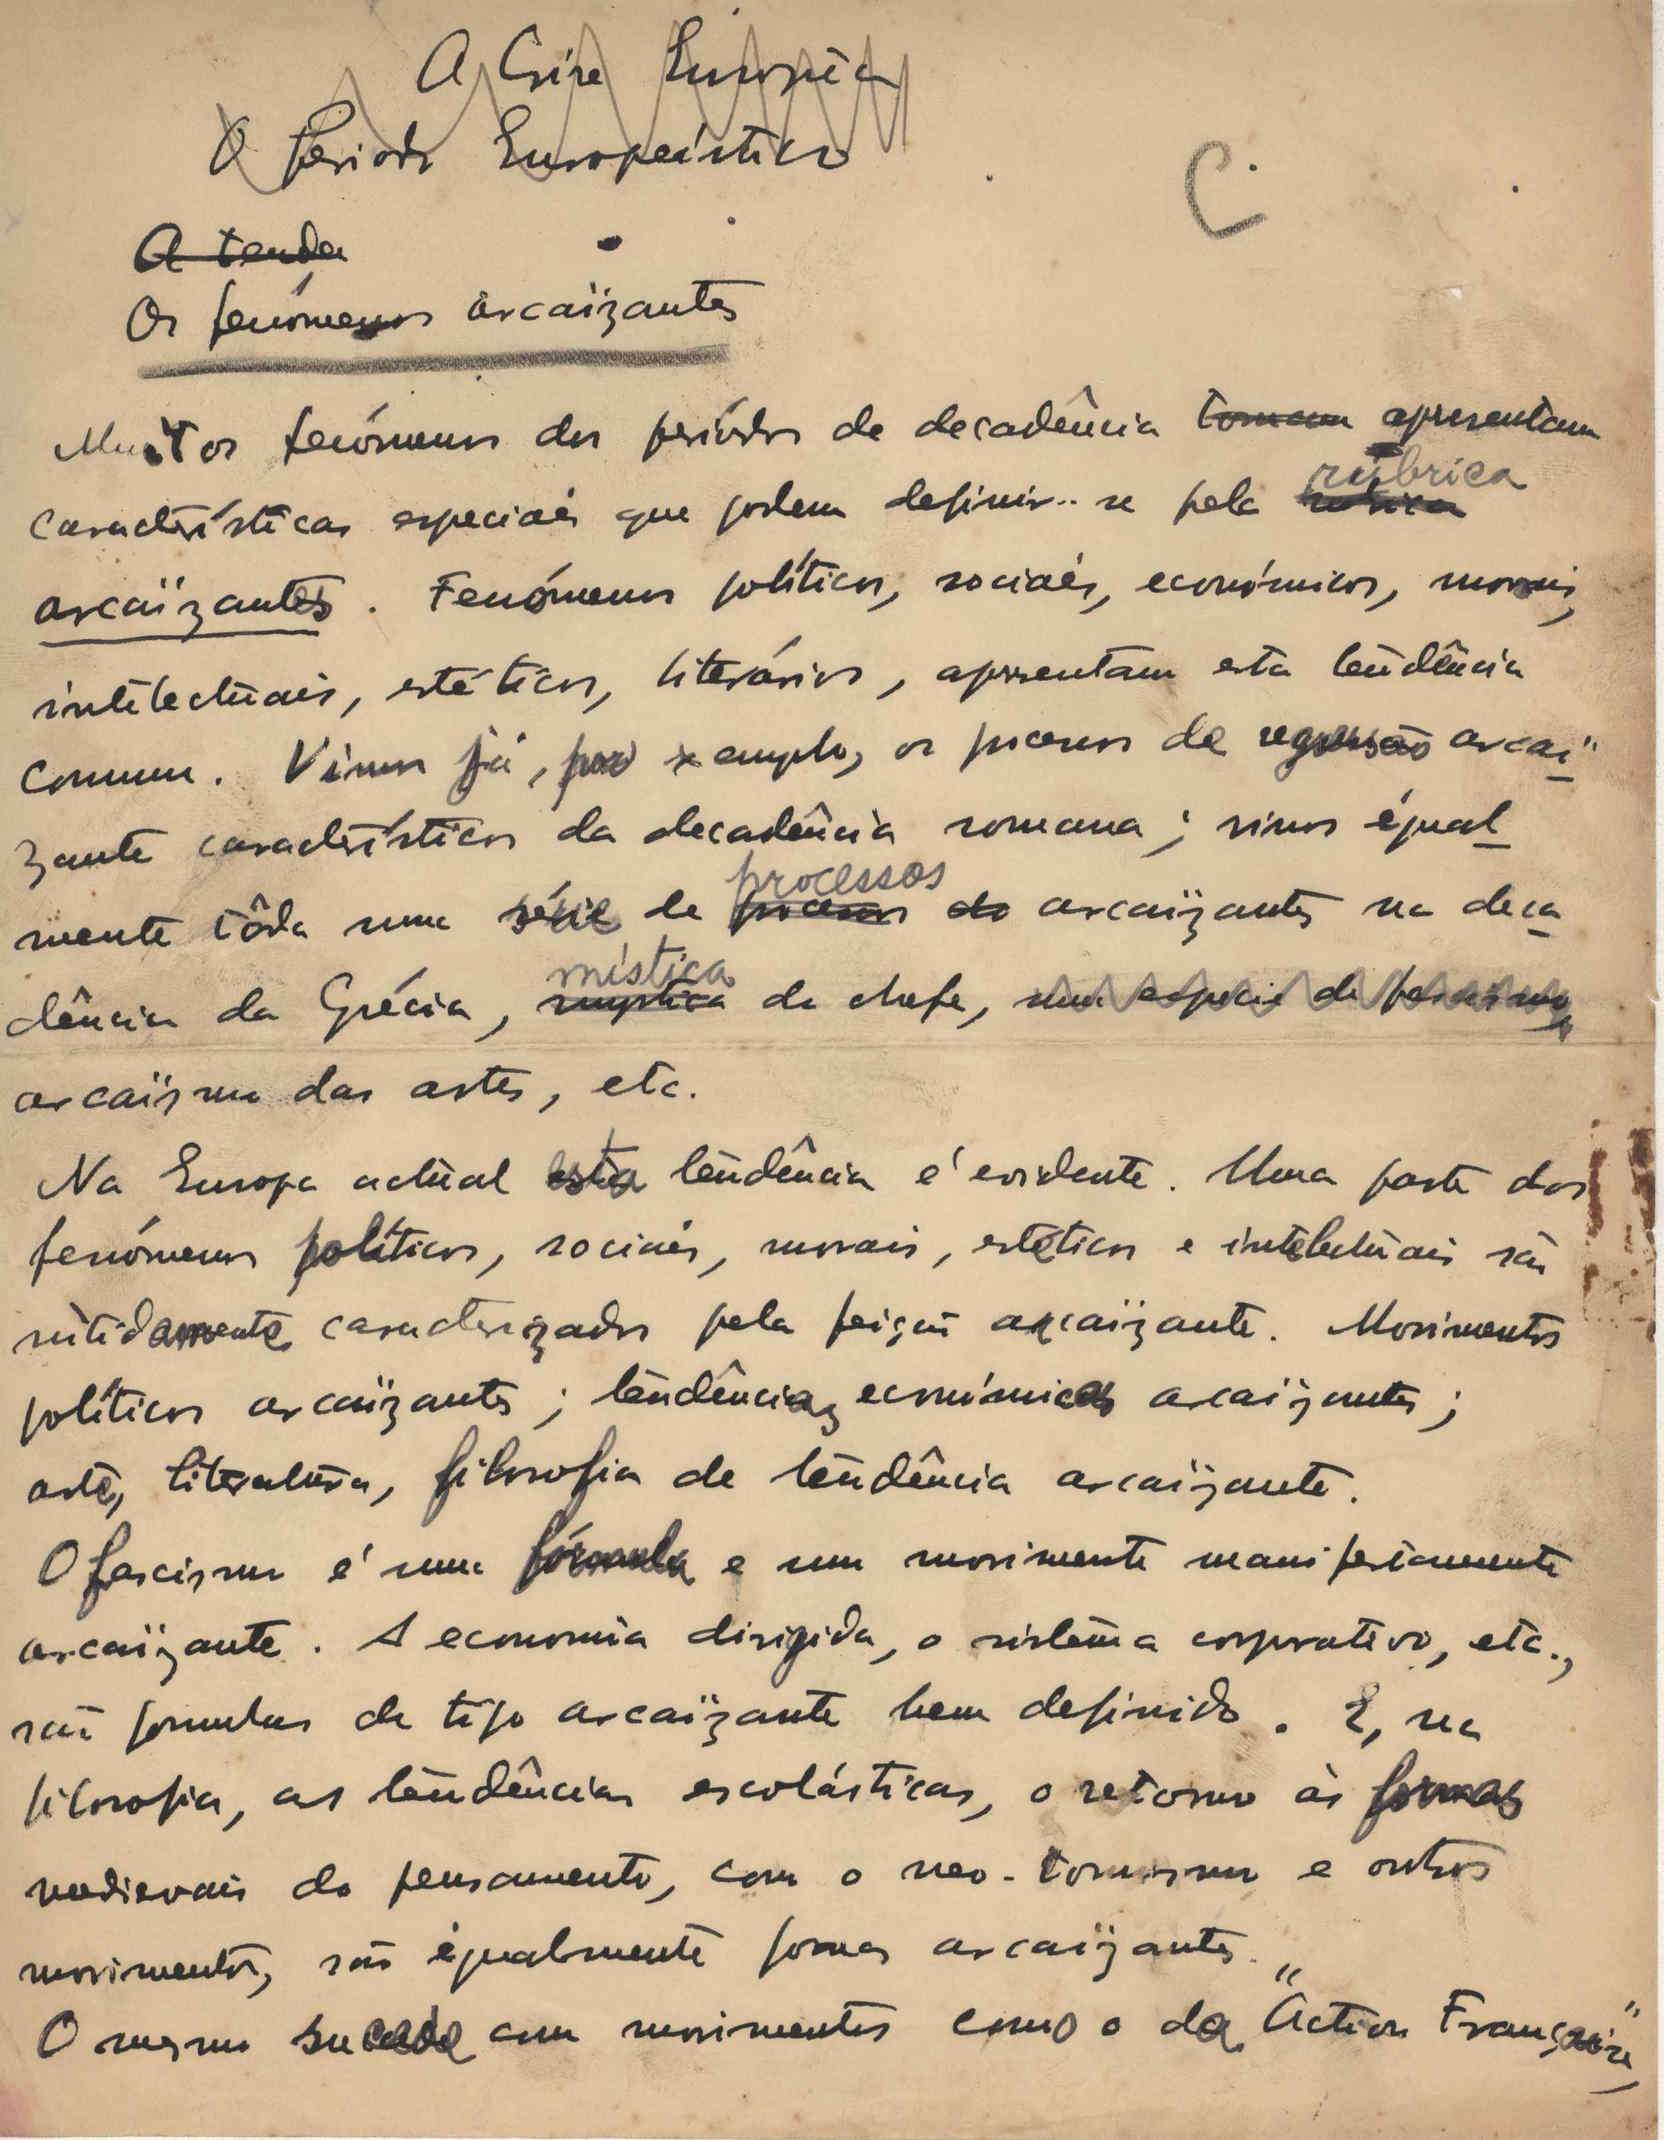 A Crise Europeia
O Período Europeístico
C.
A tenda
Os fenómenos arcaïzantes
Muitos fenómenos dos períodos de decadência tomam apresentam
características especiais que podem definir-se pela rubrica rúbrica
arcaïzantes. Fenómenos políticos, sociais, económicos, morais,
intelectuais, estéticos, literários, apresentam esta tendência
comum. Vimos já, por exemplo, os processos de regressão arcaï-
zante característicos da decadência romana; vimos igual-
mente tôda uma série de processos processos de arcaïzantes na deca-
dência da Grécia, mystica mística do chefe, uma espécie de fascismo,
arcaïsmo das artes, etc.
Na Europa actual esta tendência é evidente. Uma parte dos
fenómenos políticos, sociais, morais, estéticos e intelectuais são
nìtidamente caracterizados pela feição arcaïzante. Movimentos
políticos arcaïzantes; tendências económicas arcaïzantes;
arte, literatura, filosofia de tendência arcaïzante.
O fascismo é uma fórmula e um movimento manifestamente
arcaïzante. A economia dirigida, o sistema corporativo, etc.,
são formulas de tipo arcaïzante bem definido. E, na
filosofia, as tendências escolásticas, o retorno às formas
medievais do pensamento, com o neo-tomismo e outros
movimentos, são igualmente formas arcaïzantes.
O mesmo sucede com movimentos como o da "Action Française",